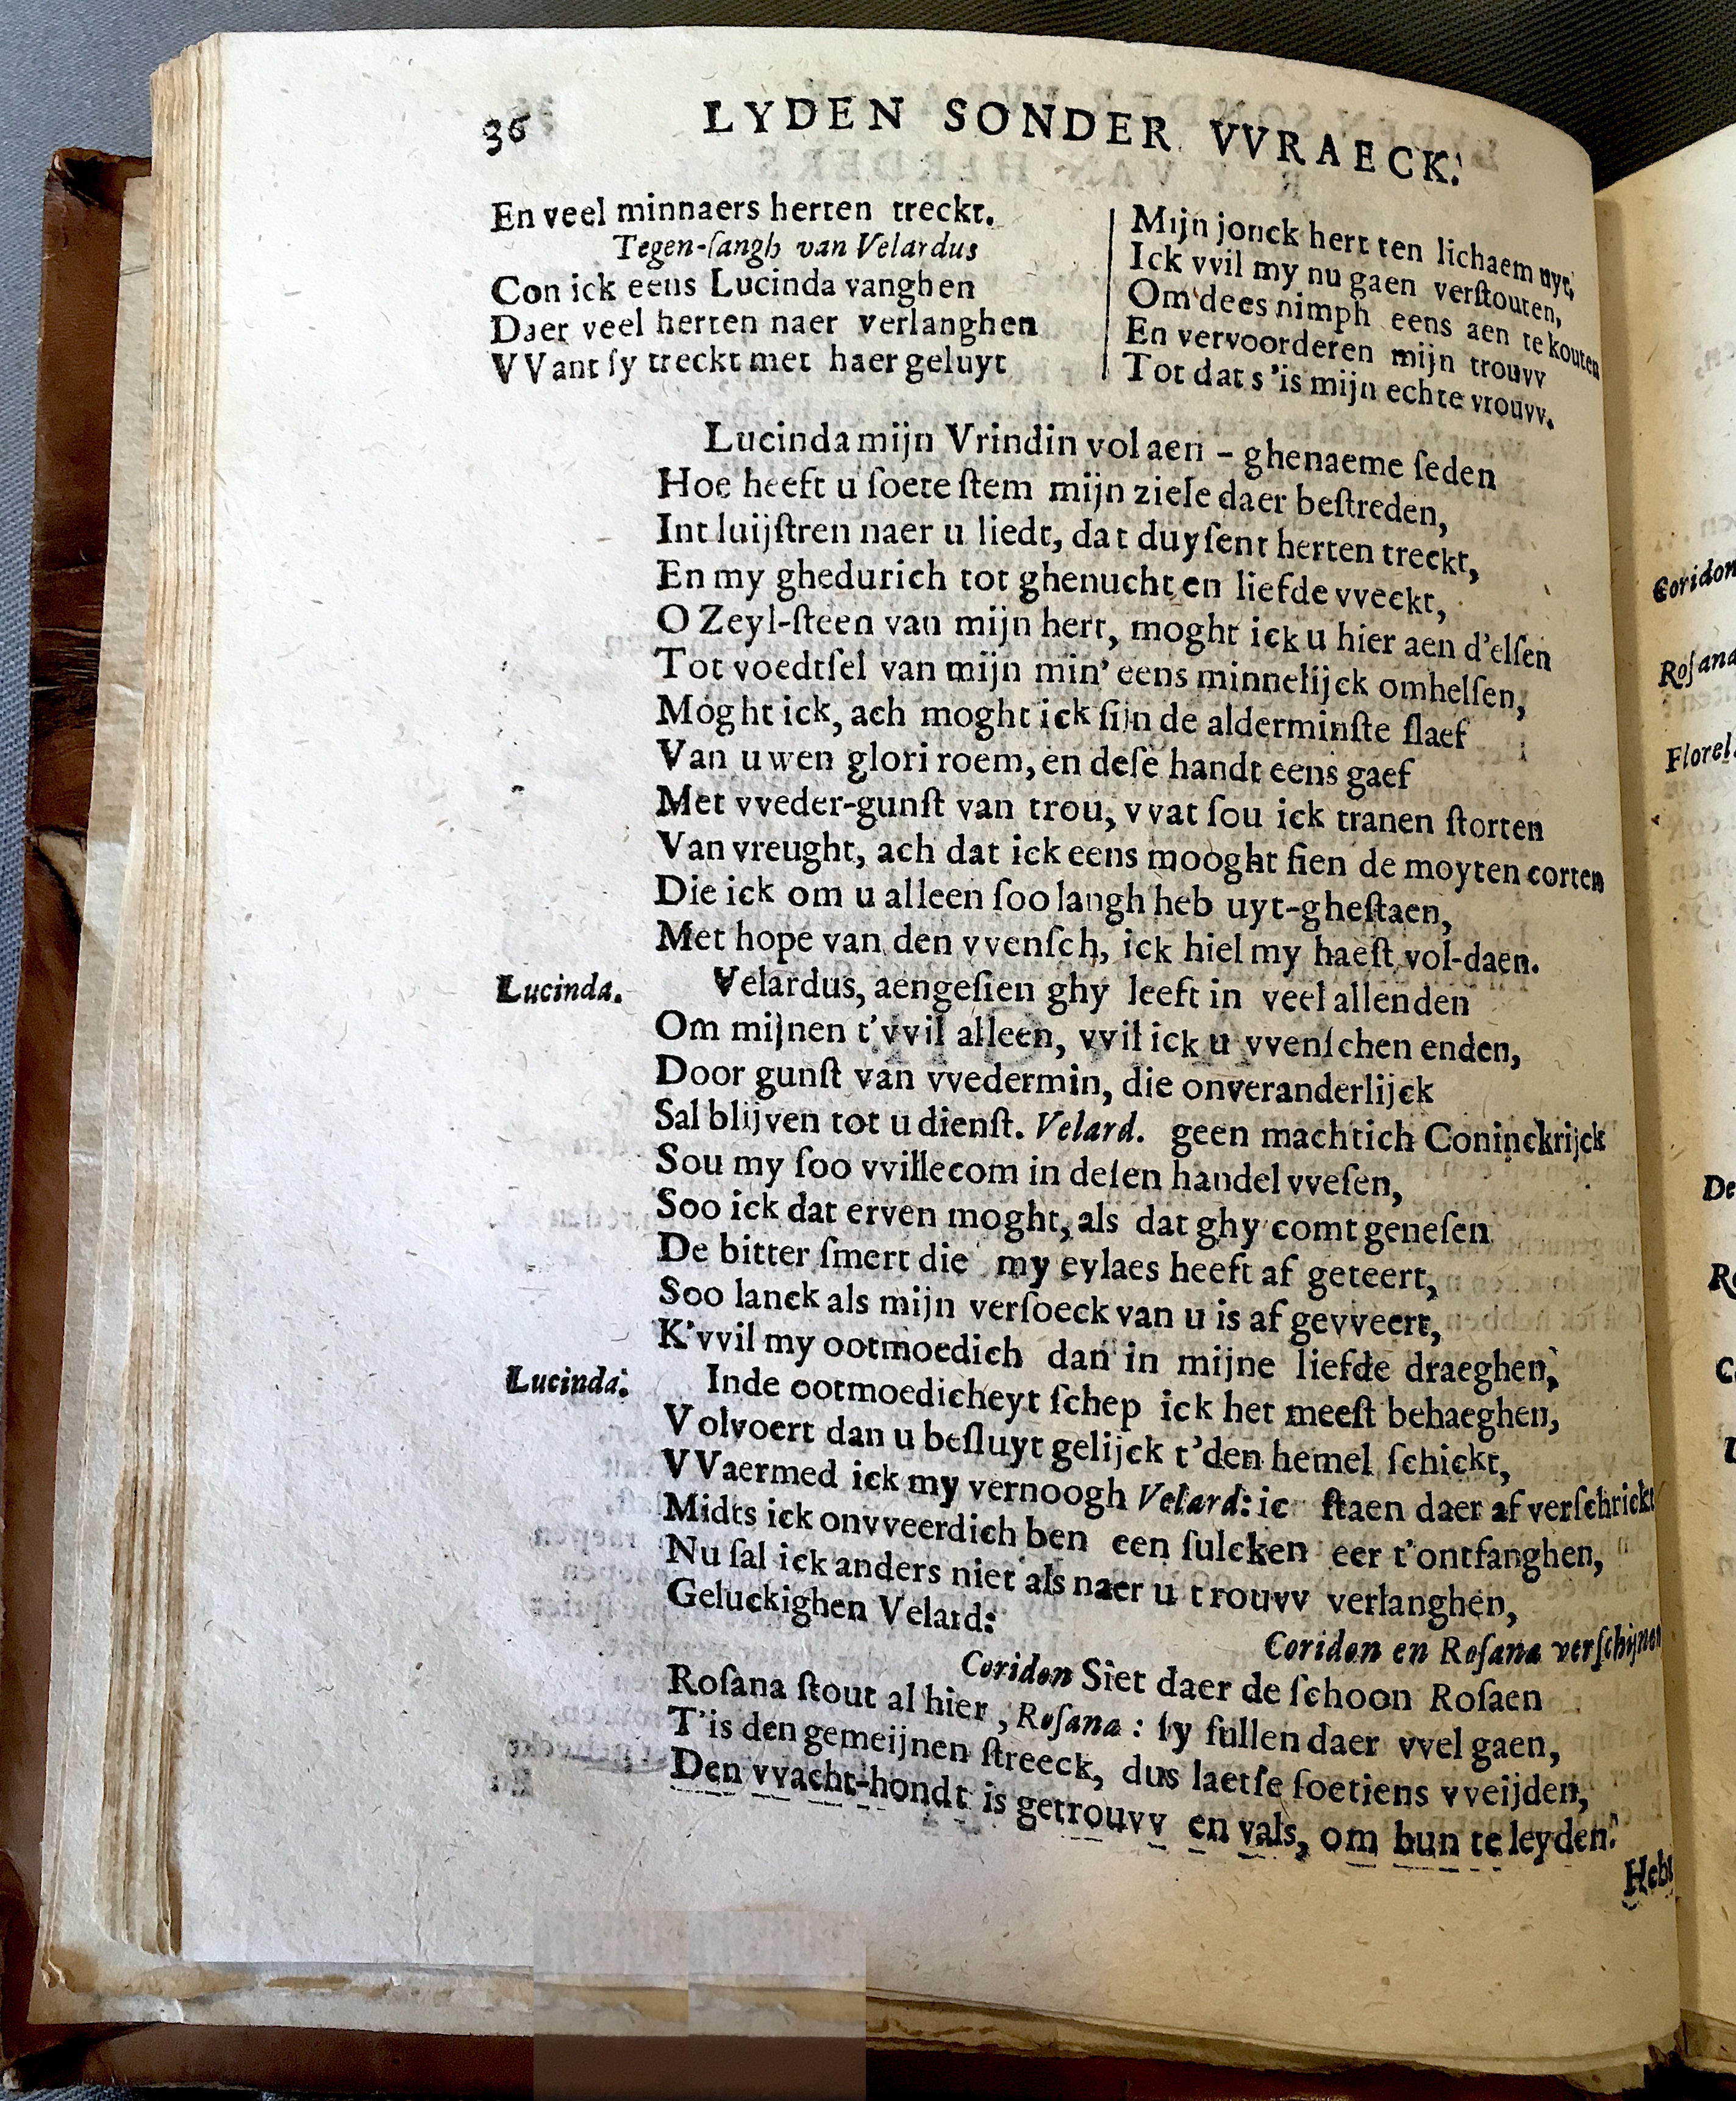 36 LYDEN SONDER VVRAECK.
En veel minnaers herten treckt.
Tegen-ſangh van Velardus
Con ick eens Lucinda vanghen
Daer veel herten naer verlanghen
VVant ſy treckt met haer geluyt
Mijn jonck hert ten lichaem uyt,
Ick vvil my nu gaen verſtouten,
Om dees nimph eens aen te kouten
En vervoorderen mijn trouvv
Tot dat s'is mijn echte vrouvv.
Lucinda mijn Vrindin vol aen-ghenaeme ſeden
Hoe heeft u ſoete ſtem mijn ziele daer beſtreden,
Int luijſtren naer u liedt, dat duyſent herten treckt,
En my ghedurich tot ghenucht en liefde vveckt,
O Zeyl-ſteen van mijn hert, moght ick u hier aen d'elſen
Tot voedtſel van mijn min' eens minnelijck omhelſen,
Moght ick, ach moght ick ſijn de alderminſte ſlaef
Van uwen glori roem, en deſe handt eens gaef
Met vveder-gunſt van trou, vvat ſou ick tranen ſtorten
Van vreught, ach dat ick eens mooght ſien de moyten corten
Die ick om u alleen ſoo langh heb uyt-gheſtaen,
Met hope van den vvenſch, ick hiel my haeſt vol-daen.
Lucinda. Velardus, aengeſien ghy leeft in veel allenden
Om mijnen t'vvil alleen, vvil ick u vvenſchen enden,
Door gunſt van vvedermin, die onveranderlijck
Sal blijven tot u dienſt. Velard. geen machtich Coninckrijck
Sou my ſoo vvillecom in deſen handel vveſen,
Soo ick dat erven moght, als dat ghy comt geneſen
De bitter ſmert die my eylaes heeft af geteert,
Soo lanck als mijn verſoeck van u is af gevveert,
K'vvil my ootmoedich dan in mijne liefde draeghen,
Lucinda. Inde ootmoedicheyt ſchep ick het meeſt behaeghen,
Volvoert dan u beſluyt gelijck t'den hemel ſchickt,
VVaermed ick my vernoogh Velard: ic ſtaen daer af verſchrickt
Midts ick onvveerdich ben een ſulcken eer t'ontfanghen,
Nu ſal ick anders niet als naer u trouvv verlanghen,
Geluckighen Velard:
Coridon en Roſana verſchijnen
Coridon Siet daer de ſchoon Roſaen
Roſana ſtout al hier, Roſana: ſy ſullen daer vvel gaen,
T'is den gemeijnen ſtreeck, dus laetſe ſoetiens vveijden,
Den vvacht-hondt is getrouvv en vals, om hun te leyden.
Hebt